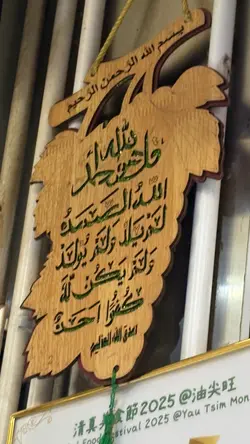 بسم الله الرحمن الرحيم
قل هو الله احد
الله الصمد
لم يلد ولم يولد
ولم يكن له
كفوا احد
صدق الله العظيم
清真美食節2025 @油尖旺
Food Festival 2025 @Yau Tsim Mon